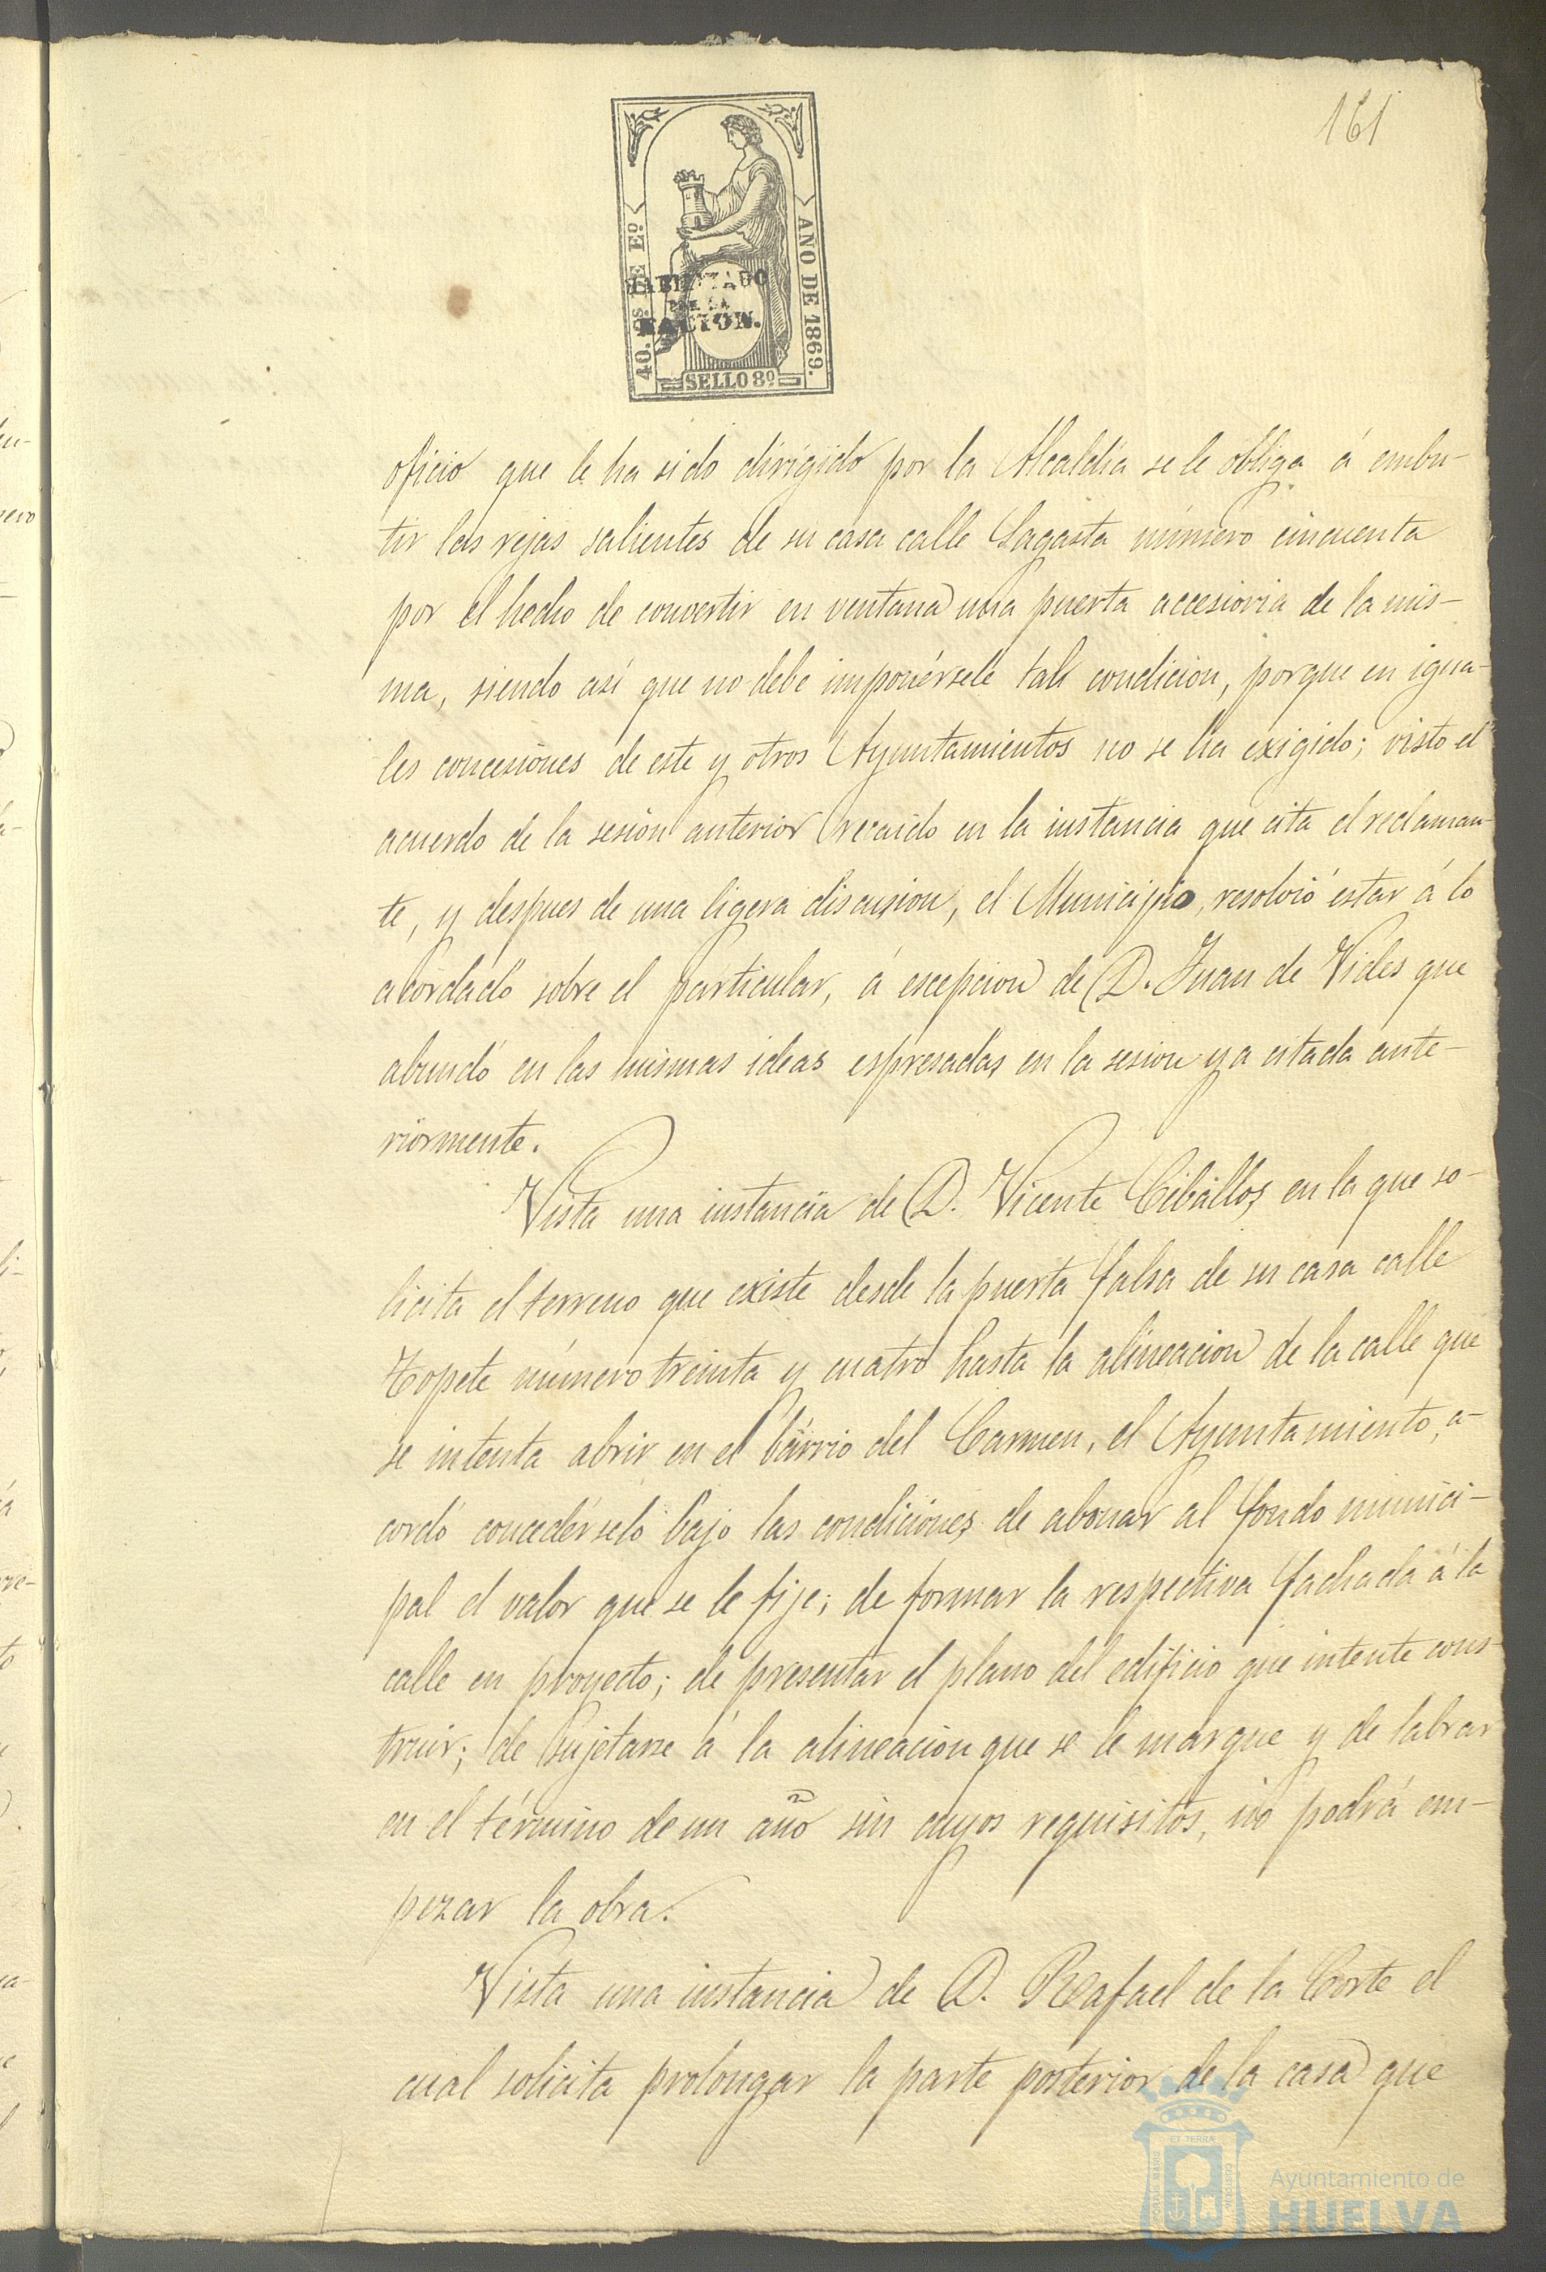 161
40. Cs. DE Eº
AÑO DE 1869.
HABILITADO
POR LA
NACION.
SELLO 8º
oficio que le ha sido dirigido por la Alcaldia se le obliga á embu-
tir las rejas salientes de su casa calle Sagasta número cincuenta
por el hecho de convertir en ventana una puerta accesioria de la mis-
ma, siendo así que no debe imponérsele tal condicion, porque en igua-
les concesiónes de este y otros Ayuntamientos no se ha exigido; visto el
acuerdo de la sesión anterior recaido en la instancia que cita el reclaman-
te, y despues de una ligera discusion, el Municipio, resolvió estar á lo
acordado sobre el particular, á escepcion de D. Juan de Vides que
abundó en las mismas ideas espresadas en la sesion ya citada ante-
riormente.
Vista una instancia de D. Vicente Ceballos, en la que so-
licita el terreno que existe desde la puerta falsa de su casa calle
Topete número treinta y cuatro hasta la alineacion de la calle que
se intenta abrir en el bárrio del Carmen, el Ayuntamiento, a-
cordó concedérselo bajo las condiciónes de abonar al fondo munici-
pal el valor que se le fije; de formar la respectiva fachada á la
calle en proyecto; de presentar el plano del edificio que intente cons-
truir; de sujetarse á la alineacion que se le marque y de labrar
en el término de un año sin cuyos requisitos, no podrá em-
pezar la obra.
Vista una instancia de D. Rafael de la Corte el
cual solicita prolongar la parte posterior de la casa que
Ayuntamiento de
HUELVA